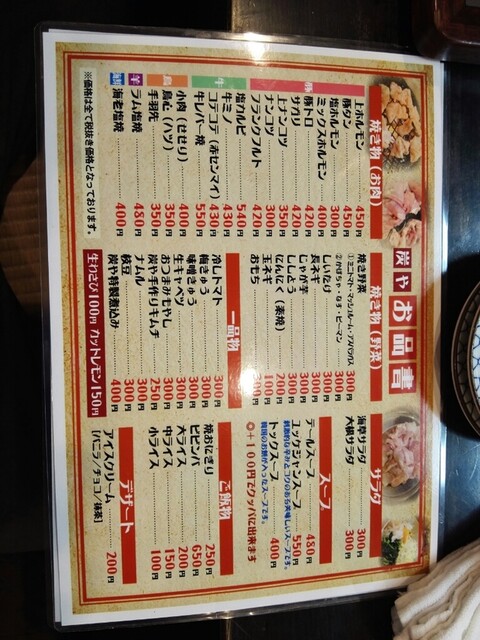 炭や お品書
焼き物(お肉)
豚
上ホルモン 450円
豚タン 450円
塩ホルモン 300円
ミックスホルモン 400円
豚トロ 420円
サガリ 420円
上ナンコツ 350円
ナンコツ 300円
フランクフルト 420円
牛
塩カルビ 540円
牛ミノ 430円
コテコテ(赤センマイ) 430円
牛レバー焼 550円
鳥
小肉(せせり) 400円
鳥心(ハツ) 350円
手羽先 350円
羊
ラム塩焼 480円
海鮮
海老塩焼 400円
※価格は全て税抜き価格となっております。
焼き物(野菜)
焼き野菜 300円
①ミニトマト・マッシュルーム・アスパラガス
②かぼちゃ・なす・ピーマン
しいたけ 300円
長ネギ 300円
じゃが芋 300円
ししとう 300円
にんにく(素焼) 200円
玉ネギ 100円
おもち 200円
一品物
冷しトマト 300円
梅きゅう 300円
味噌きゅう 300円
生キャベツ 300円
おつまみもやし 300円
炭や手作りキムチ 250円
ナムル 300円
枝豆 300円
炭や特製煮込み 400円
生わさび100円 カットレモン150円
サラダ
海草サラダ 300円
大根サラダ 300円
スープ
テールスープ 480円
ユッケジャンスープ 550円
刺激的な辛みとコクのある美味しいスープです。
トックスープ 400円
韓国のお餅が入ったスープです。
◎+100円でクッパに出来ます
ご飯物
焼おにぎり 250円
ビビンバ 650円
大ライス 200円
中ライス 150円
小ライス 100円
デザート
アイスクリーム 200円
[バニラ/チョコ/抹茶]